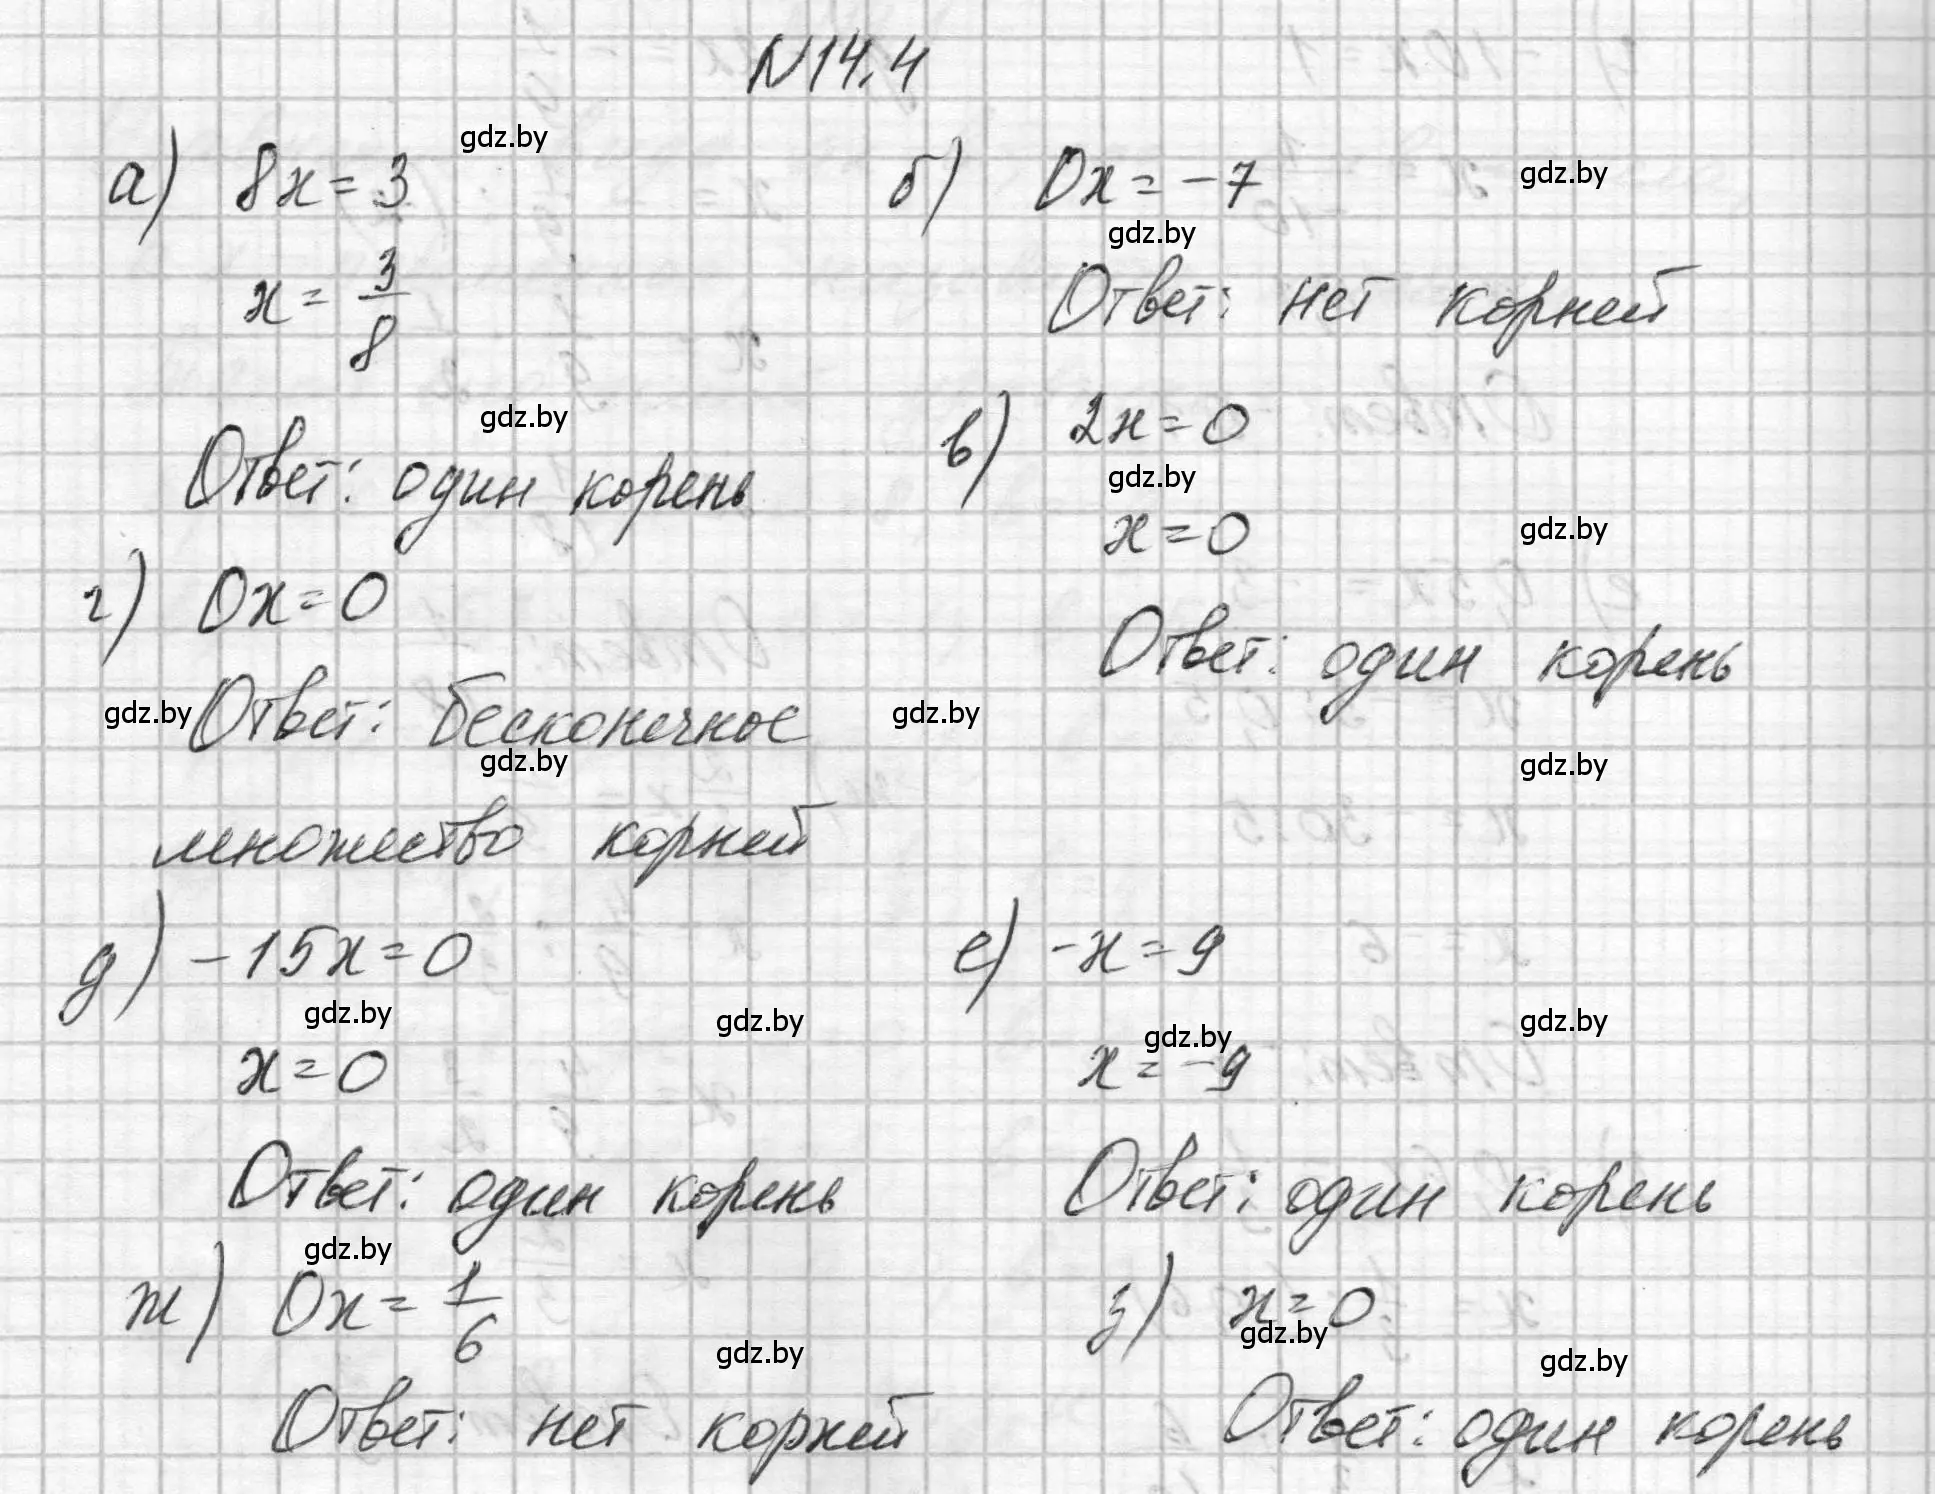 N14.4
а) 8x = 3
gdz.by
x = 3/8
Ответ: один корень
gdz.by
б) 0x = -7
gdz.by
gdz.by
Ответ: нет корней
в) 2x = 0
gdz.by
x = 0
gdz.by
Ответ: один корень
г) 0x = 0
Ответ: бесконечное
gdz.by
gdz.by
gdz.by
gdz.by
множество корней
д) -15x = 0
gdz.by
gdz.by
x = 0
Ответ: один корень
е) -x = 9
gdz.by
gdz.by
x = -9
Ответ: один корень
ж) 0x = 1/6
gdz.by
gdz.by
Ответ: нет корней
з) x = 0
gdz.by
gdz.by
Ответ: один корень